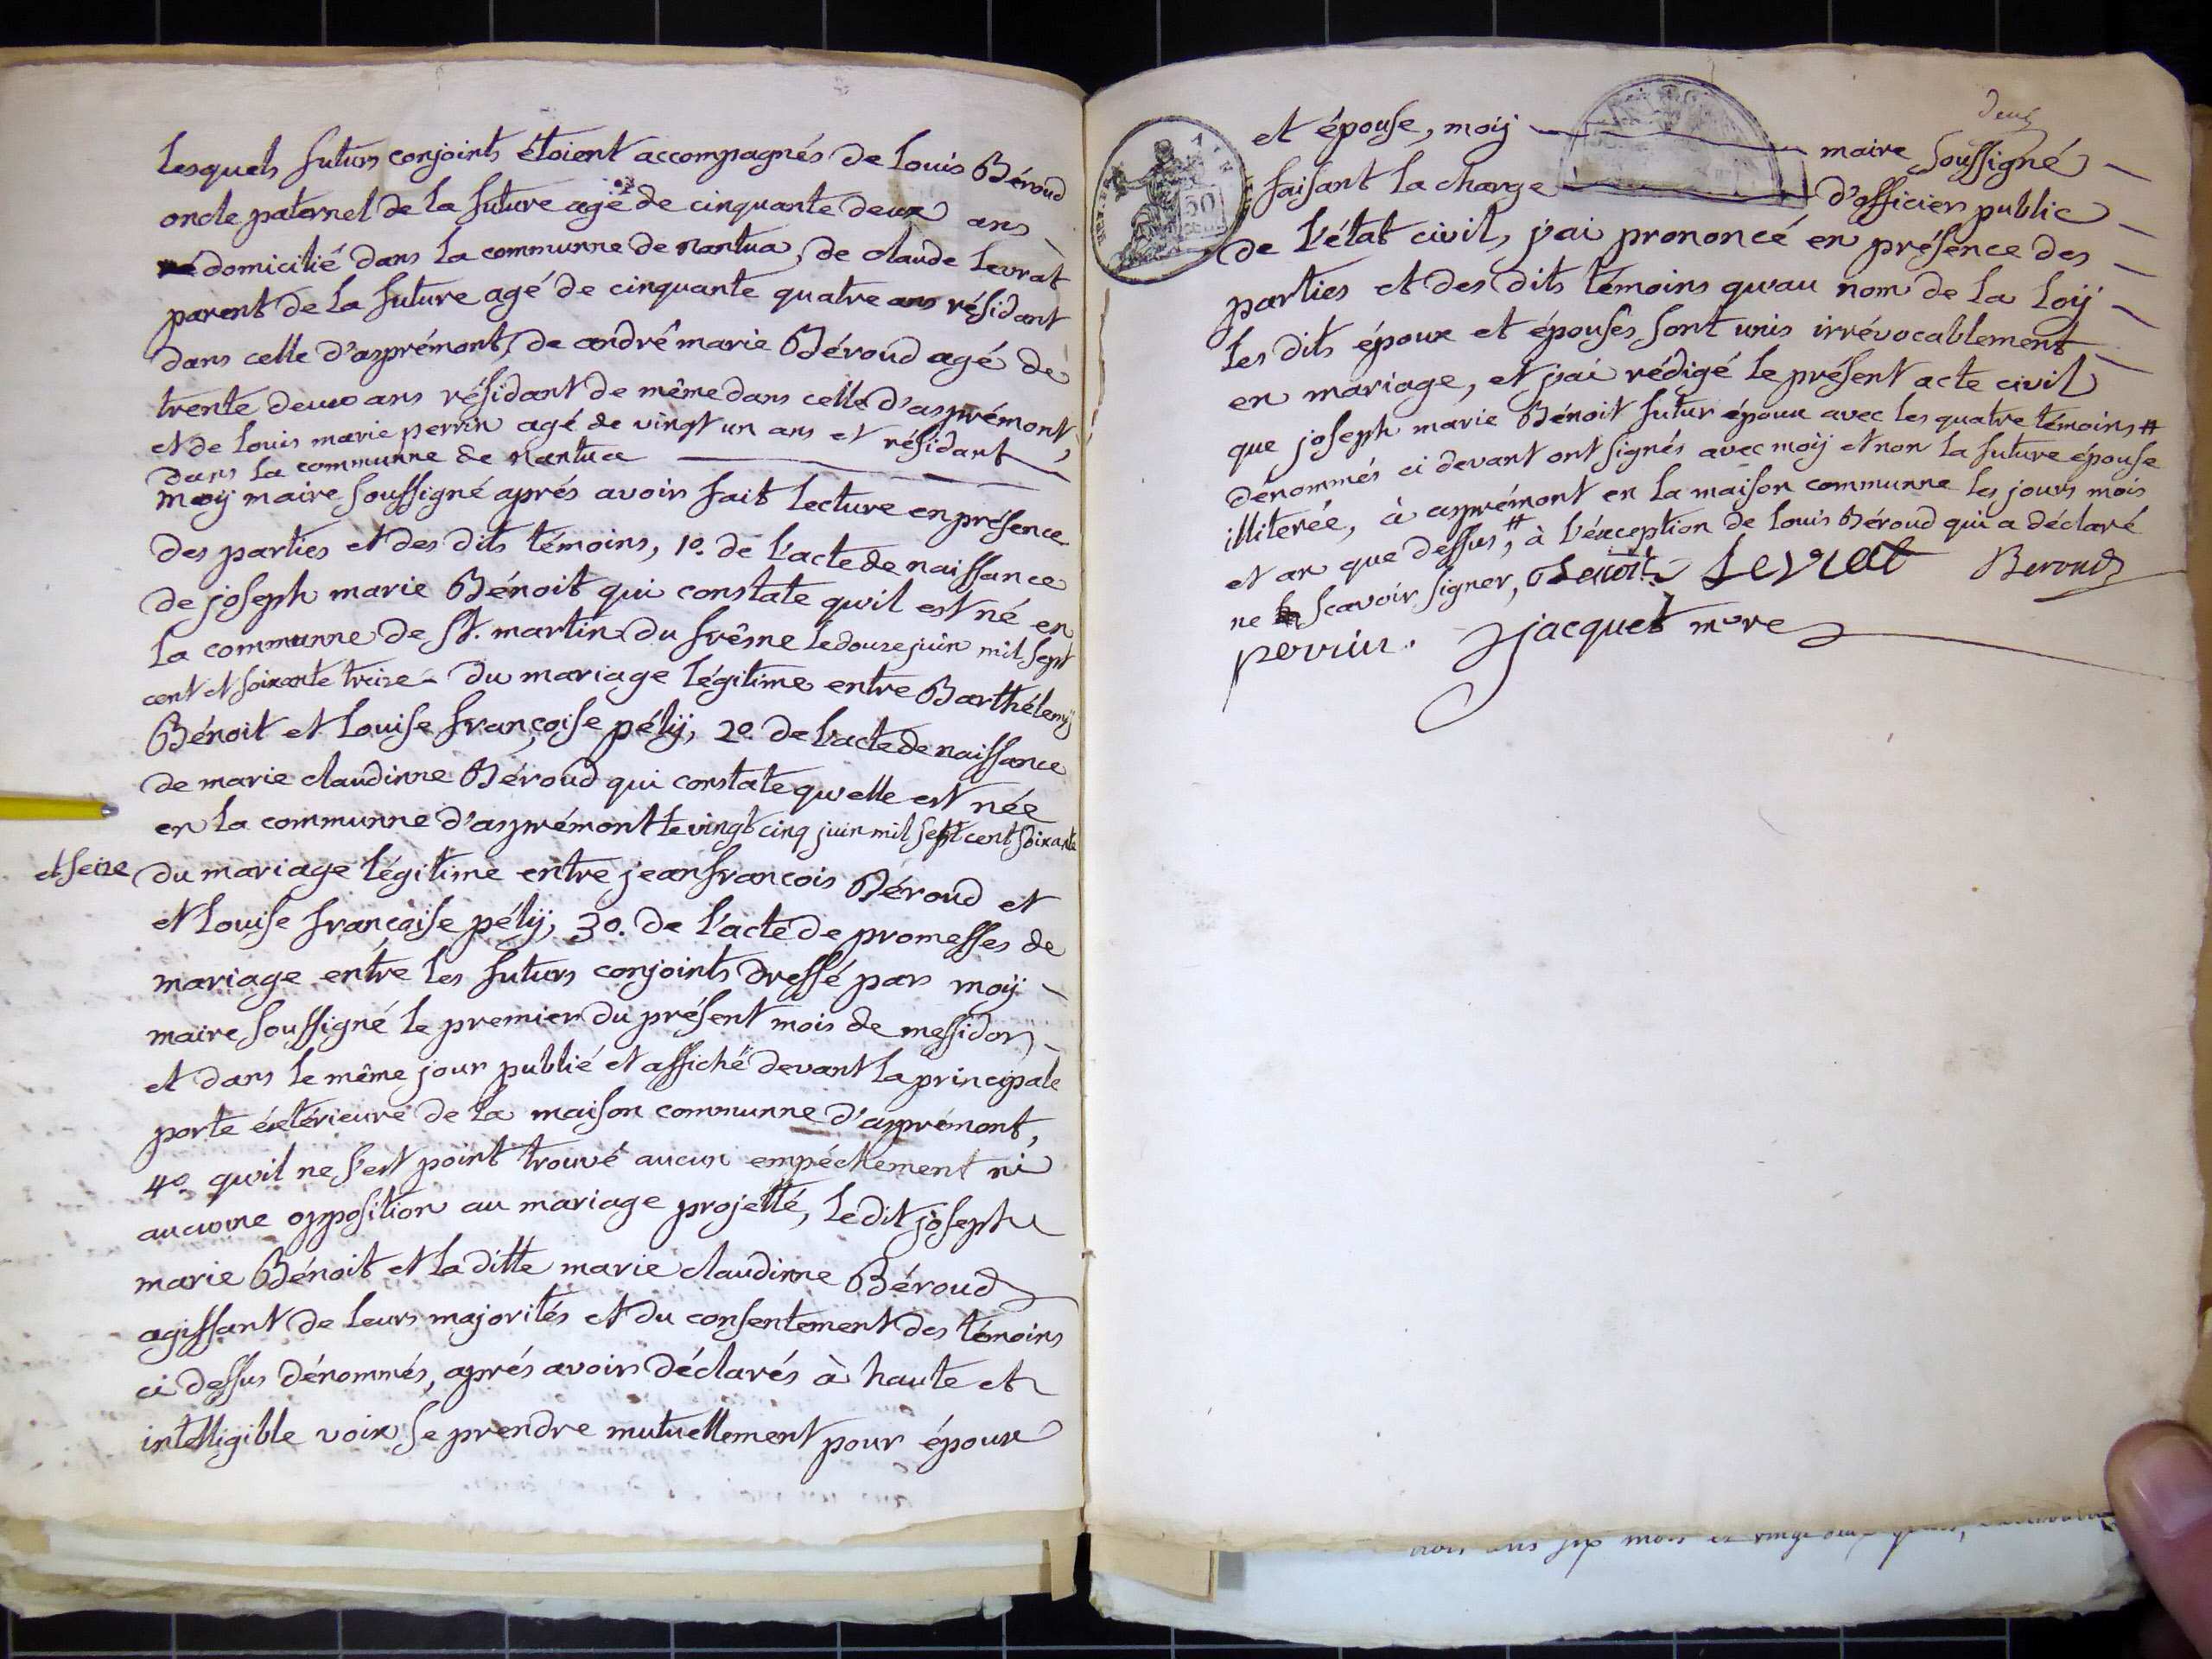 Lesquels futurs conjoints étoient accompagnés de Louis Béroud
oncle paternel de la future agé de cinquante deux ans
domicilié dans la communne de nantua, de claude Levrat
parent de la future agé de cinquante quatre ans résidant
dans celle d'asprémont, de andré marie Béroud agé de
trente deux ans résidant de même dans celle d'asprémont,
et de Louis marie perrin agé de vingt un ans et résidant
dans la communne de nantua
moÿ maire soussigné aprés avoir fait lecture en présence
des parties et des dits témoins, 1o. de l'acte de naissance
de joseph marie Bénoit qui constate qu'il est né en
la communne de St. martin du frêsne le douze juin mil sept
cent et soixante treize du mariage légitime entre Barthélemÿ
Bénoit et Louise françoise pélÿ, 2o. de l'acte de naissance
de marie claudinne Béroud qui constate qu'elle est née
en la communne d'asprémont le vingt cinq juin mil sept cent soixante
et seize du mariage légitime entre jean françois Béroud et
et Louise françoise pélÿ, 3o. de l'acte de promesses de
mariage entre les futurs conjoints dressé par moÿ
maire soussigné le premier du présent mois de messidor
et dans le même jour publié et affiché devant la principale
porte éxtérieure de la maison communne d'asprémont,
4o. qu'il ne s'est point trouvé aucun empéchement ni
aucunne opposition au mariage projetté, le dit joseph
marie Bénoit et la ditte marie claudinne Béroud
agissant de leurs majorités et du consentement des témoins
ci dessus dénommés, aprés avoir déclarés à haute et
intelligible voix se prendre mutuellement pour époux
deux
et épouse, moÿ maire soussigné
faisant la charge d'officier public
de l'état civil, j'ai prononcé en présence des
parties et des dits témoins qu'au nom de la Loÿ
les dits époux et épouses sont unis irrévocablement
en mariage, et j'ai rédigé le présent acte civil
que joseph marie Bénoit futur époux avec les quatre témoins #
dénommés ci devant ont signés avec moÿ et non la future épouse
illiterée, à asprémont en la maison communne les jours mois
et an que dessus, # à l'éxception de Louis Béroud qui a déclaré
ne scavoir signer, Benoit Levrat Beroud
perrin. jacquet mre